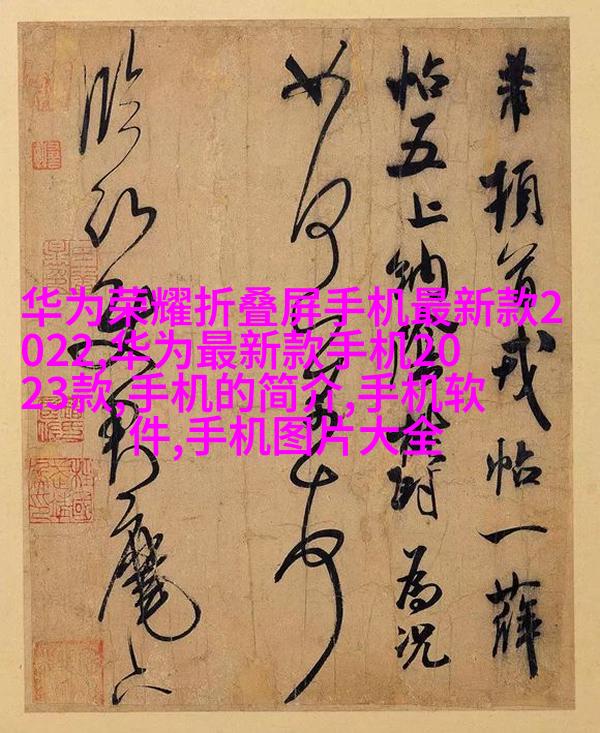 华为荣耀折叠屏手机最新款2
022,华为最新款手机20
23款,手机的简介,手机软
件,手机图片大全
芾頓首戎帖一薛
帖五上納陰鬱為況
如何芾頓首
臨沂使君麾下